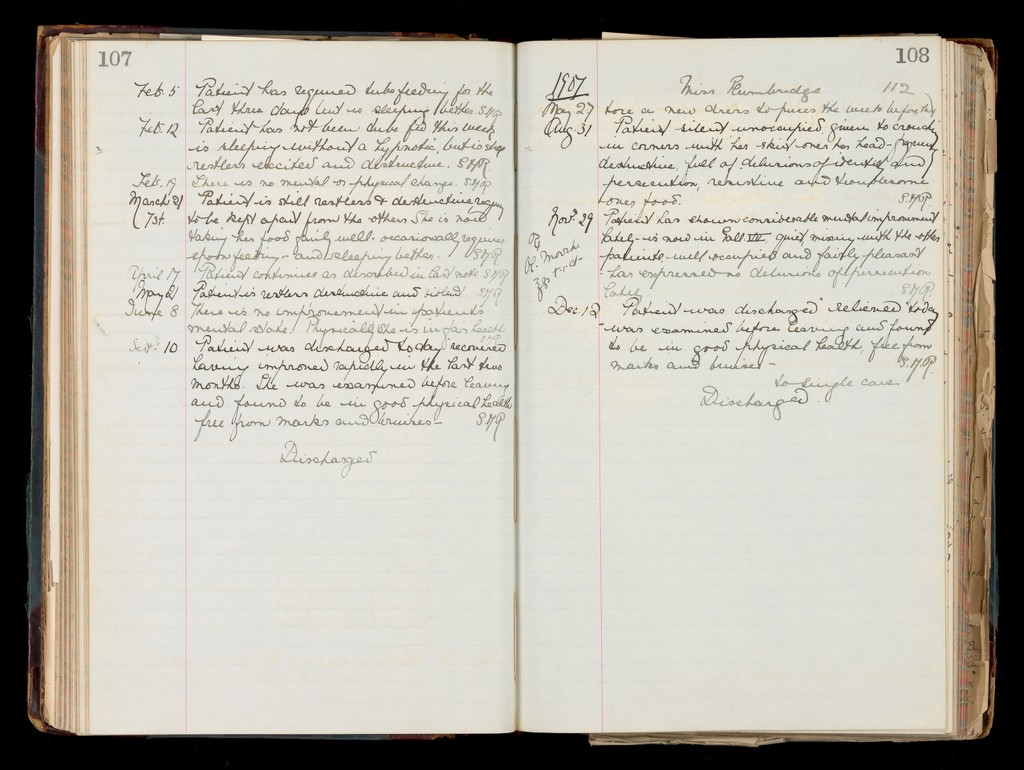 107
Feb. 5 Patient has required tube feeding for the
last three days but is sleeping better. S.M.P.
Feb. 12 Patient has not been tube fed this week
is sleeping without a hypnotic, but is very
restless excited and destructive. S.M.P.
Feb. 19 There is no mental or physical change. S.M.P.
March 21 Patient is still restless & destructive requiring
7st. to be kept apart from the others She is now
taking her food fairly well - occasionally requires
spoon feeding - and sleeping better. S.M.P.
April 17 Patient continues as described in last note. S.M.P.
May 2 Patient is restless destructive and violent S.M.P.
June 8 There is no improvement in patient's
mental state. Physically she is in fair health
S.M.P.
Sept. 10 Patient was discharged today "recovered"
having improved rapidly in the last two
months. She was examined before leaving
and found to be in good physical health
free from marks and bruises - S.M.P.
Discharged.
108
1907 Miss Plumbridge 112
May 27 tore a new dress to pieces the week before this
Aug. 31 Patient silent unoccupied, given to crouching
in corners with her skirt over her head -
destructive, full of delusions of identity and
persecution, resistive and troublesome
over food. S.M.P.
Nov. 29 Patient has shown considerable mental improvement
lately - is now in Gall. VII, quiet mixing with the other
patients - well occupied and fairly pleasant
has expressed no delusions of persecution
lately. S.M.P.
Dec. 12 Patient was discharged "relieved" today
was examined before leaving and found
to be in good physical health, free from
marks and bruises - S.M.P.
to single care
Discharged.